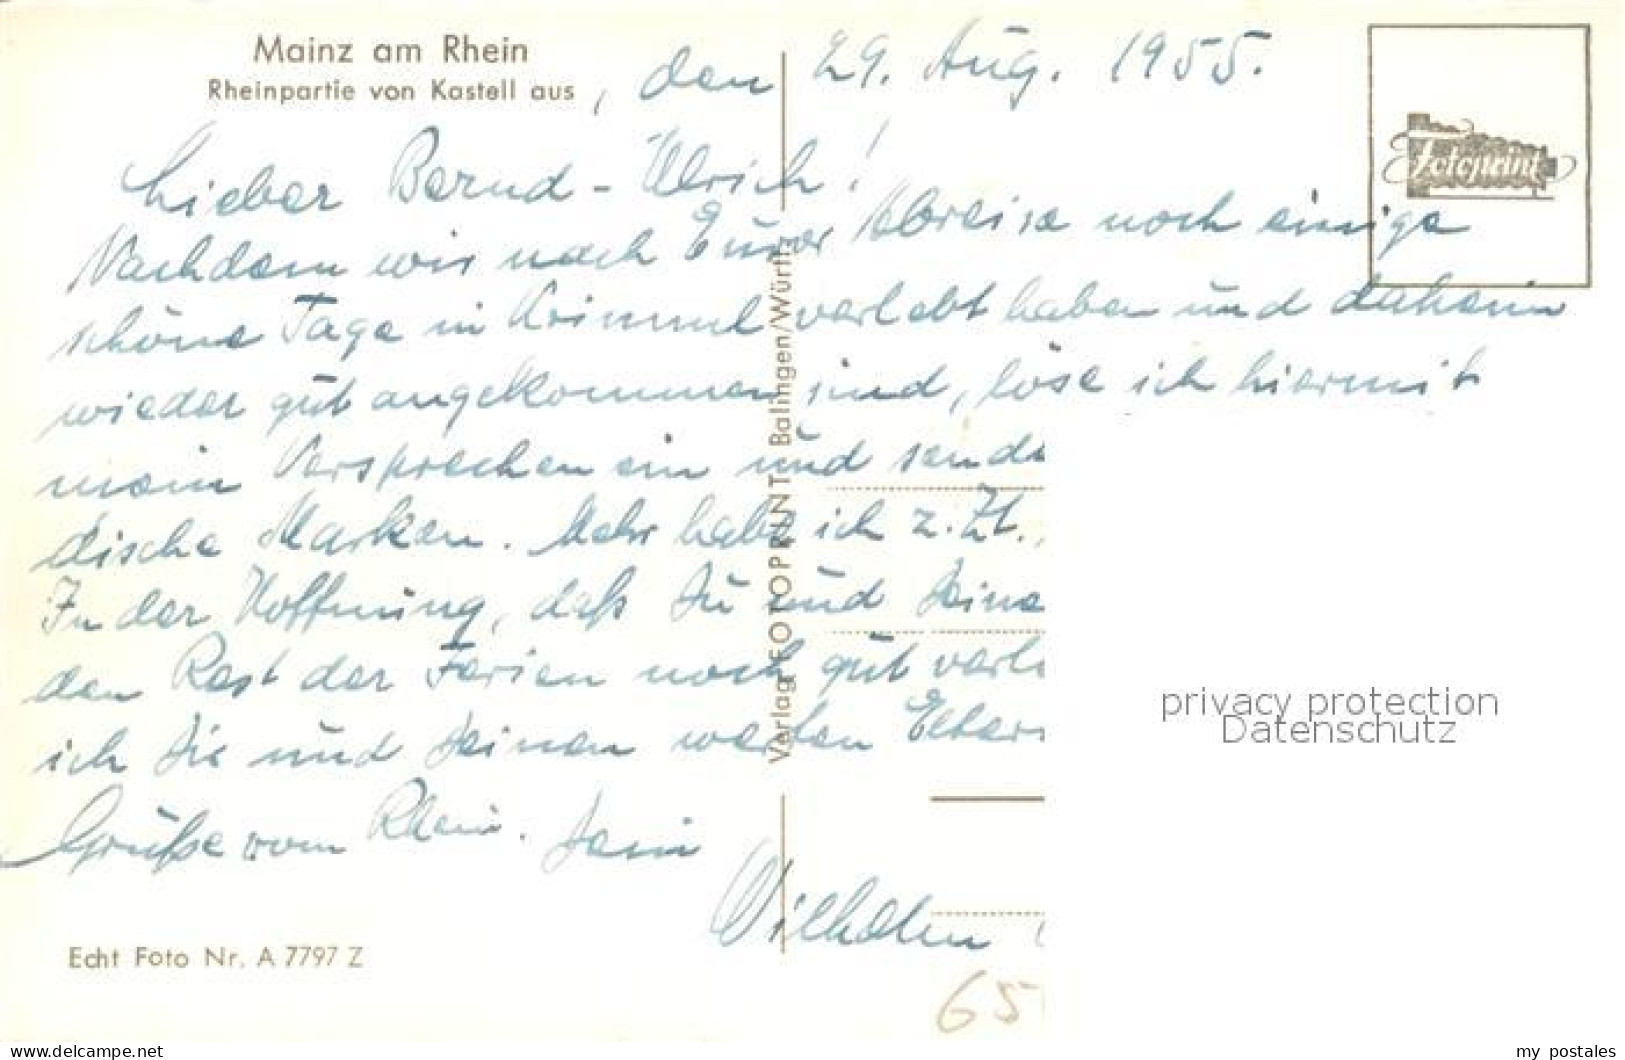 Mainz am Rhein
Rheinpartie von Kastell aus
, den 29. Aug. 1955.
Lieber Bernd-Ulrich!
Nachdem wir nach Eurer Abreise noch einige
schöne Tage in Krimml verlebt haben und daheim
wieder gut angekommen sind, löse ich hiermit
mein Versprechen ein und sende
dische Marken. Mehr habe ich z. Zt.
In der Hoffnung, daß Du und Deine
den Rest der Ferien noch gut verle
ich Dir und Deinen werten Eltern
Grüße vom Rhein. Dein
Wilhelm
Verlag FOTOPRINT Balingen/Württ.
Fotoprint
Echt Foto Nr. A 7797 Z
65
privacy protection
Datenschutz
www.delcampe.net
my_postales